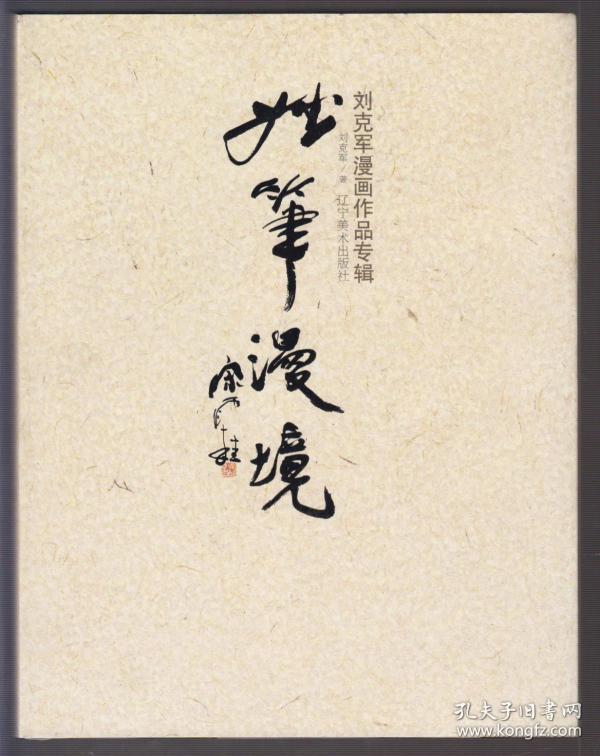 刘克军漫画作品专辑
刘克军/著 辽宁美术出版社
筆漫境
宋雨桂
孔夫子旧书网
www.kongfz.com